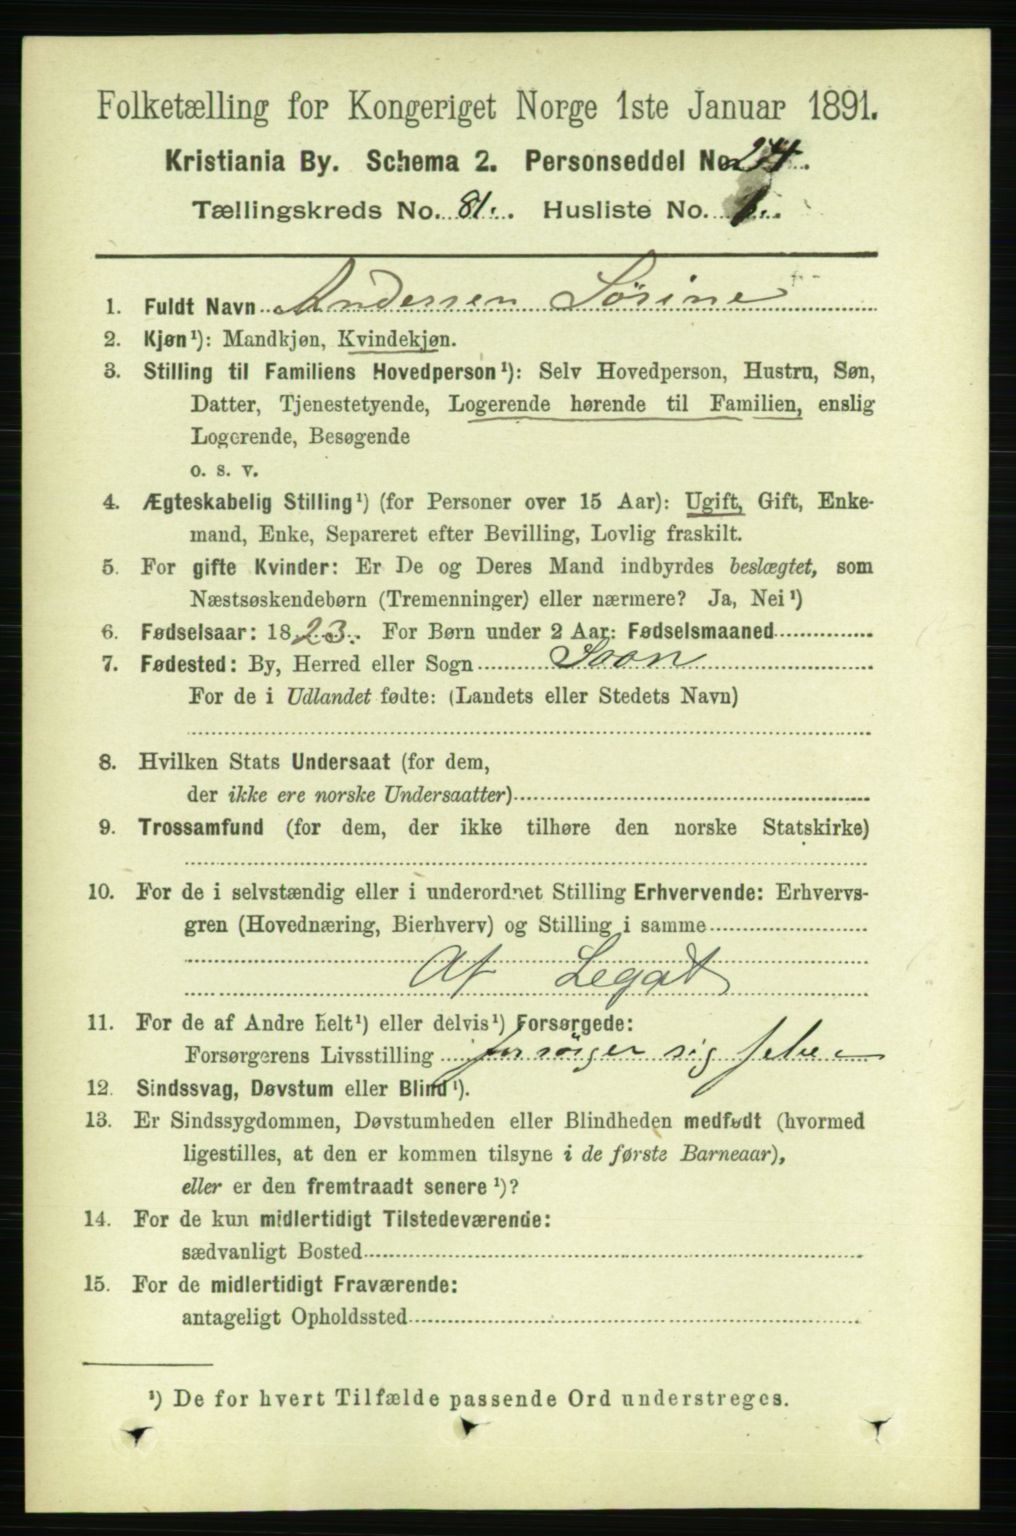 Folketælling for Kongeriget Norge 1ste Januar 1891.
Kristiania By. Schema 2. Personseddel No 244.
Tællingskreds No. 81. Husliste No. 1.
1. Fuldt Navn Andersen Sørine
2. Kjøn¹): Mandkjøn, Kvindekjøn.
3. Stilling til Familiens Hovedperson¹): Selv Hovedperson, Hustru, Søn,
Datter, Tjenestetyende, Logerende hørende til Familien, enslig
Logerende, Besøgende
o. s. v.
4. Ægteskabelig Stilling¹) (for Personer over 15 Aar): Ugift, Gift, Enke-
mand, Enke, Separeret efter Bevilling, Lovlig fraskilt.
5. For gifte Kvinder: Er De og Deres Mand indbyrdes beslægtet, som
Næstsøskendebørn (Tremenninger) eller nærmere? Ja, Nei¹)
6. Fødselsaar: 1823. For Børn under 2 Aar: Fødselsmaaned
7. Fødested: By, Herred eller Sogn Soon
For de i Udlandet fødte: (Landets eller Stedets Navn)
8. Hvilken Stats Undersaat (for dem,
der ikke ere norske Undersaatter)
9. Trossamfund (for dem, der ikke tilhøre den norske Statskirke)
10. For de i selvstændig eller i underordnet Stilling Erhvervende: Erhvervs-
gren (Hovednæring, Bierhverv) og Stilling i samme
Af Legat
11. For de af Andre helt¹) eller delvis¹) Forsørgede:
Forsørgerens Livsstilling forsörger sig selv
12. Sindssvag, Døvstum eller Blind¹).
13. Er Sindssygdommen, Døvstumheden eller Blindheden medfødt (hvormed
ligestilles, at den er kommen tilsyne i de første Barneaar),
eller er den fremtraadt senere¹)?
14. For de kun midlertidigt Tilstedeværende:
sædvanligt Bosted
15. For de midlertidigt Fraværende:
antageligt Opholdssted
¹) De for hvert Tilfælde passende Ord understreges.